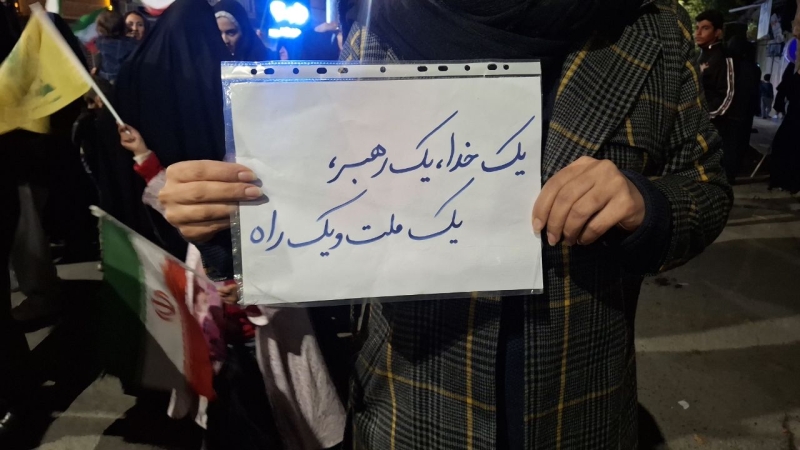 یک خدا، یک رهبر،
یک ملت و یک راه